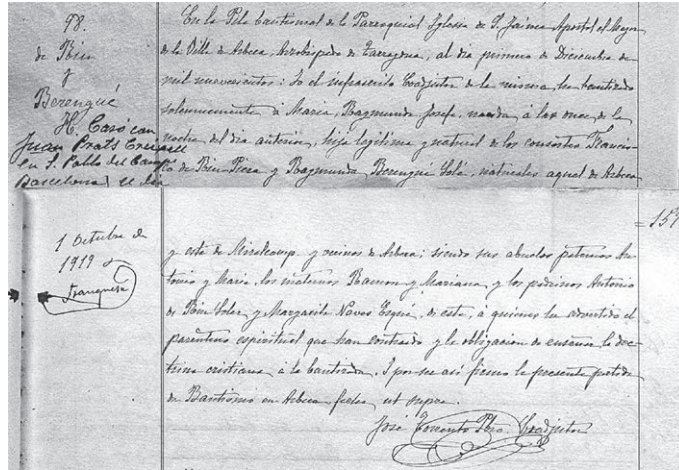 98.
de Pin
y
Berengué
H. Casó con
Juan Prats
en S. Pablo del Campo
Barcelona el día
En la Pila bautismal de la Parroquial Iglesia de S. Jaime Apostol el Mayor
de la Villa de Arbeca, Arzobispado de Tarragona, al dia primero de Diciembre de
mil nuevecientos: Yo el infrascrito Coadjutor de la misma, he bautizado
solemnemente á Maria, Raymunda, Josefa, nacida á las once de la
noche del dia anterior, hija legítima y natural de los consortes Francis-
co de Pin Piera y Raymunda Berengué Solé, naturales aquel de Arbeca
1 Octubre de
1919
= 157
y esta de Miralcamp y vecinos de Arbeca; siendo sus abuelos paternos An-
tonio y Maria, los maternos Ramon y Mariana, y los padrinos Antonio
de Pin Soler y Margarita Naves Esqué, de esta, á quienes he advertido el
parentesco espiritual que han contraido y la obligacion de enseñar la doc-
trina cristiana á la bautizada. Y por ser asi firmo la presente partida
de Bautismo en Arbeca fecha ut supra.
José Pbro. Coadjutor